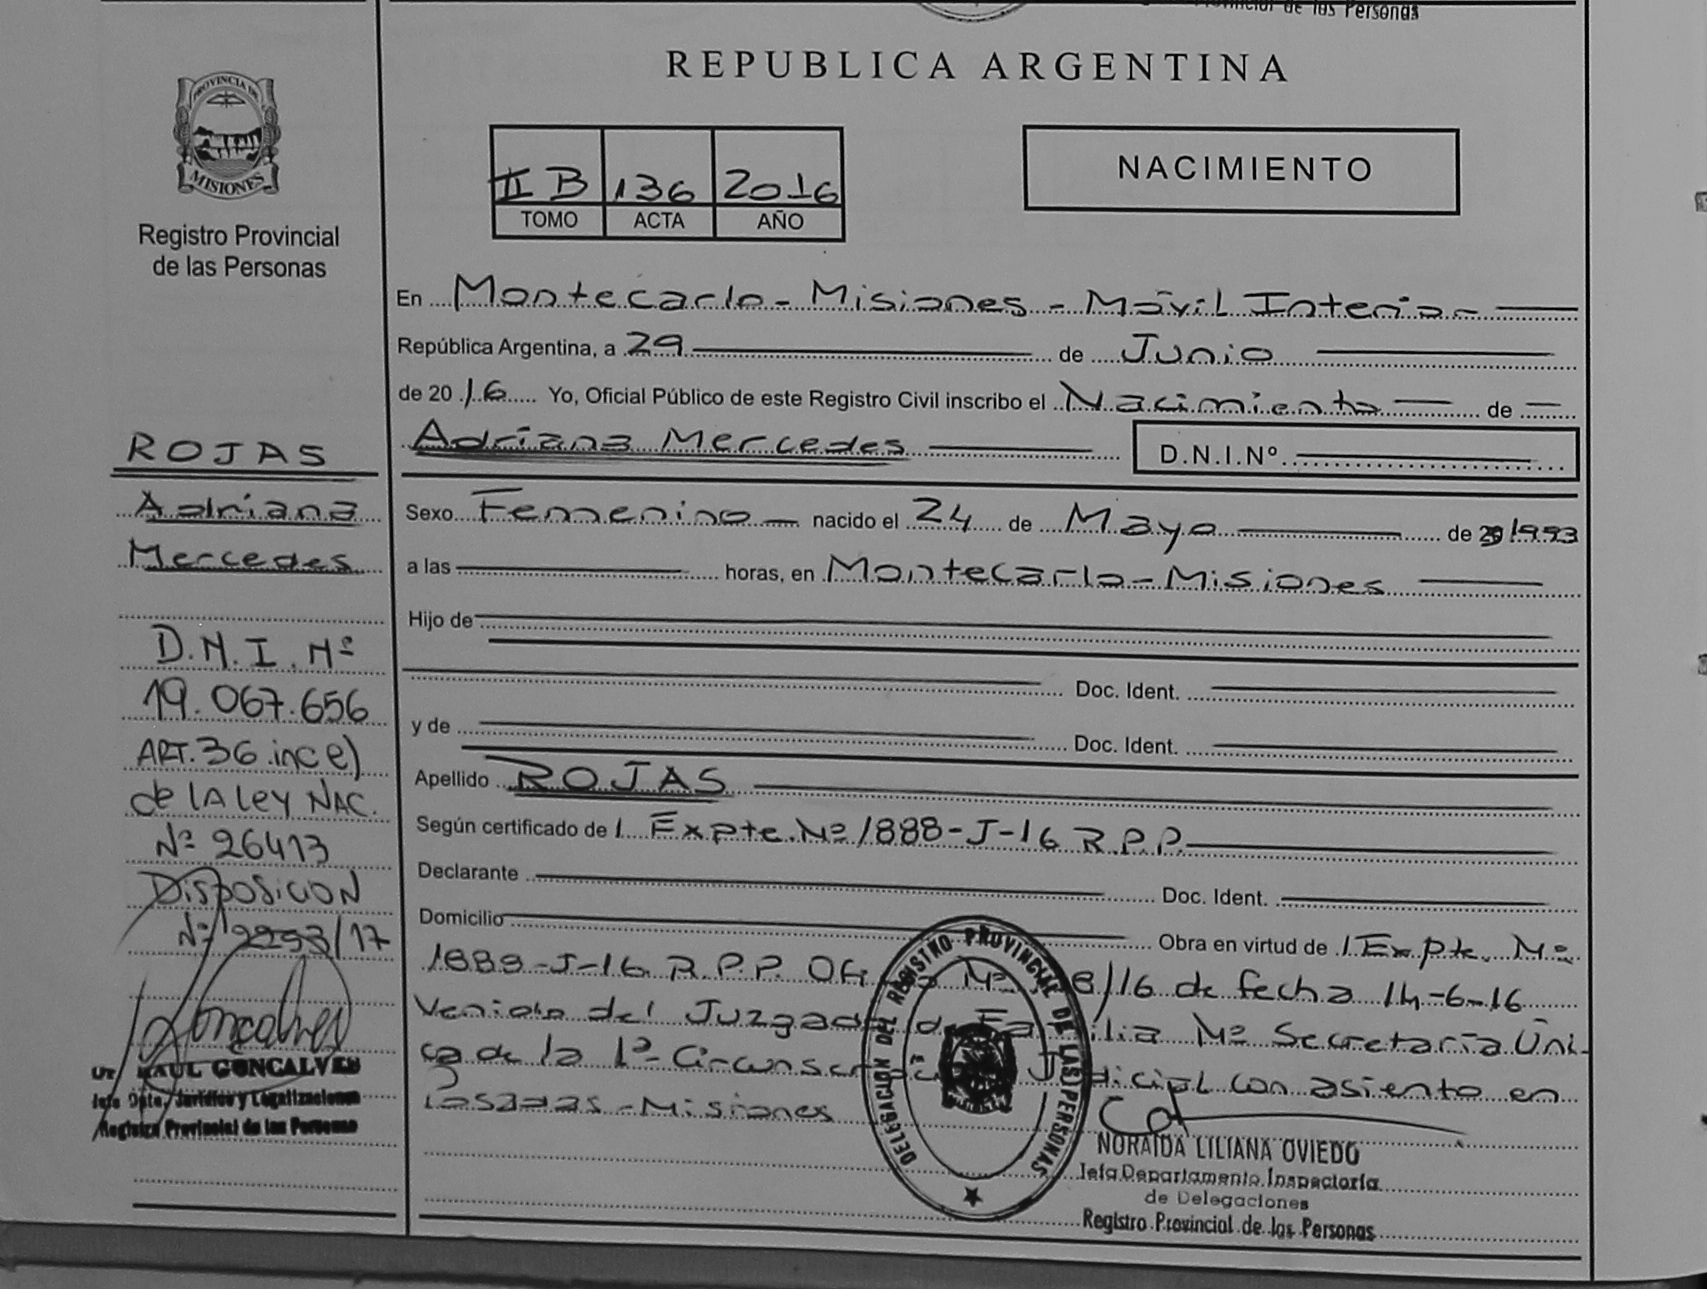 de las Personas
REPUBLICA ARGENTINA
PROVINCIA DE
MISIONES
Registro Provincial
de las Personas
II B 136 2016
TOMO ACTA AÑO
NACIMIENTO
En Montecarlo - Misiones - Móvil Interior
República Argentina, a 29 de Junio
de 2016 Yo, Oficial Público de este Registro Civil inscribo el Nacimiento de
Adriana Mercedes D.N.I.Nº
Sexo Femenino nacido el 24 de Mayo de 1993
a las horas, en Montecarlo - Misiones
Hijo de
Doc. Ident.
y de Doc. Ident.
Apellido ROJAS
Según certificado de 1 Expte. Nº 1888-J-16 R.P.P.
Declarante Doc. Ident.
Domicilio Obra en virtud de 1 Expte. Nº
1888-J-16 R.P.P. /16 de fecha 14-6-16
Venido del Juzgado de Familia Nº Secretaría Úni-
ca de la 1ª Circunscripción Judicial con asiento en
Posadas - Misiones
ROJAS
Adriana
Mercedes
D.N.I. Nº
19.067.656
ART. 36 inc e)
de LA Ley NAC.
Nº 26413
Disposicion
Nº /17
RAUL GONCALVES
Jefe Dpto. Jurídico y Legalizaciones
Registro Provincial de las Personas
DELEGACION DEL REGISTRO PROVINCIAL DE LAS PERSONAS
NORAIDA LILIANA OVIEDO
Jefa Departamento Inspectoría
de Delegaciones
Registro Provincial de las Personas